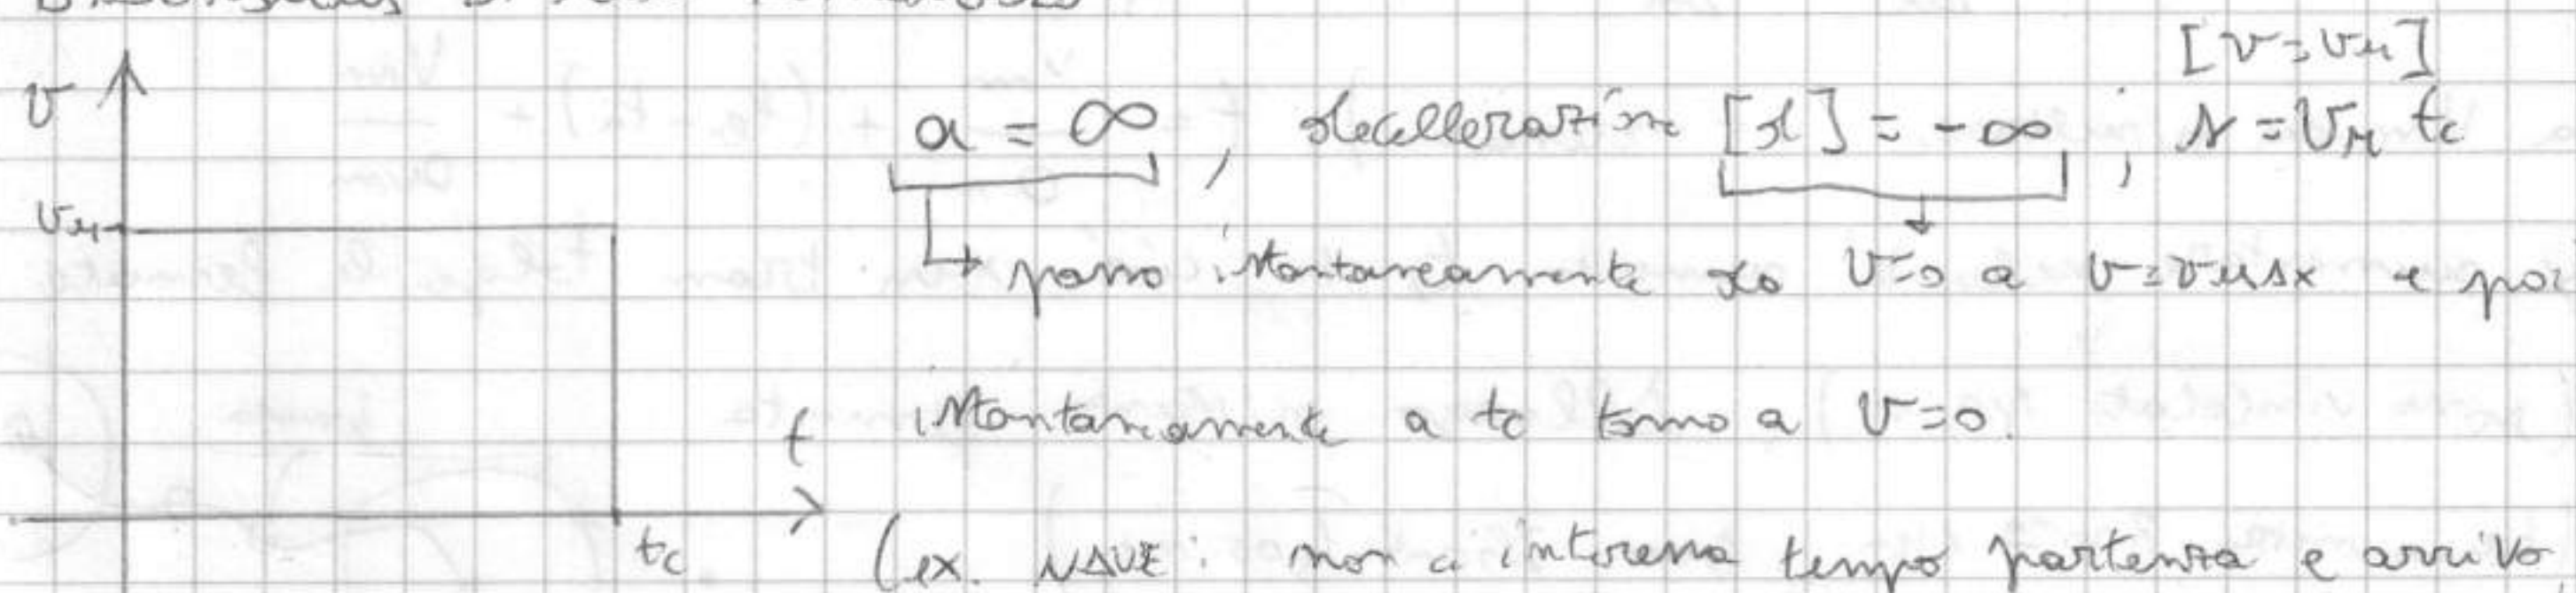 [v=vM]
v
a = ∞, decellerazione [d] = -∞; s = VM tc
vM
↳ passo istantaneamente da v=0 a v=vMAX e poi
istantaneamente a tc torno a v=0.
t
tc
(ex. NAVE: non ci interessa tempo partenza e arrivo,